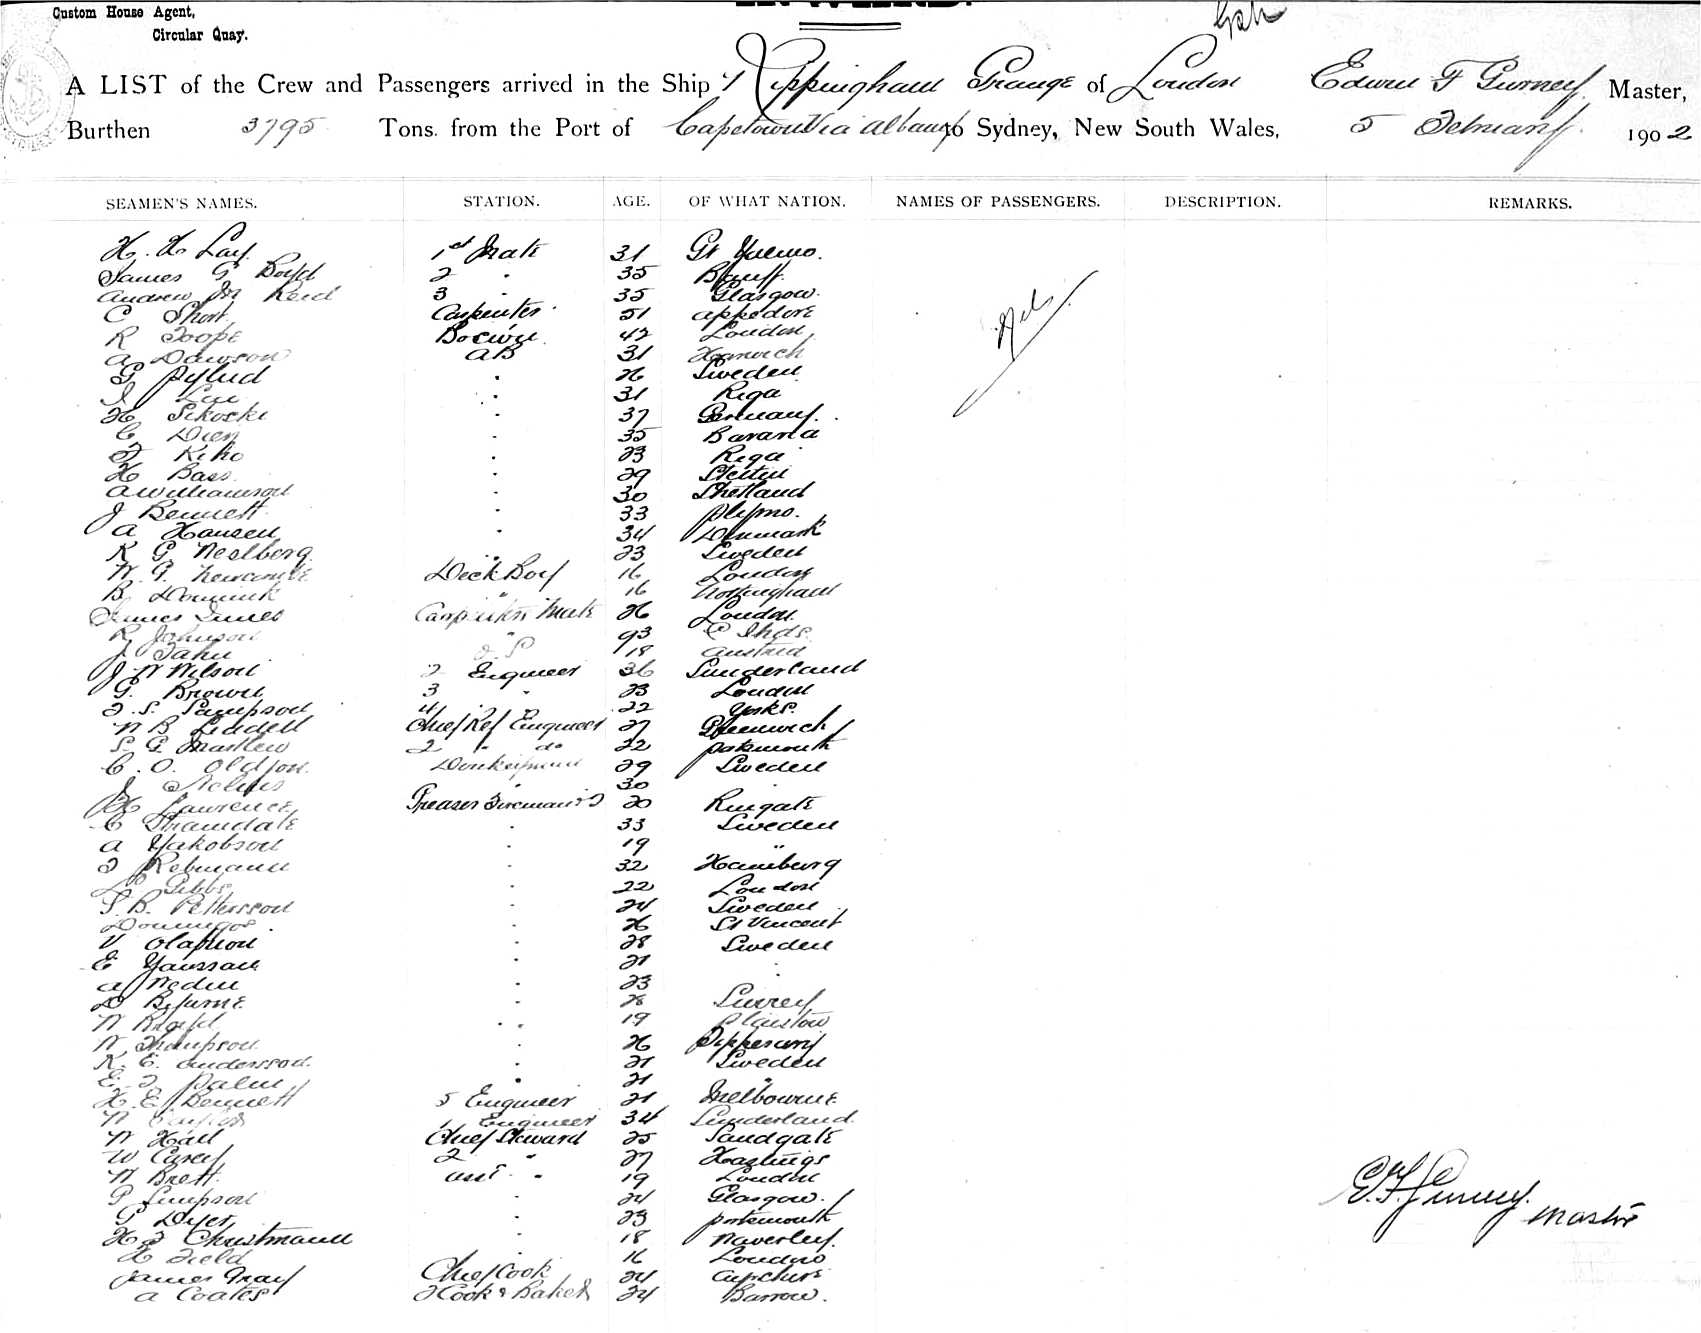 Custom House Agent,
Circular Quay.
A LIST of the Crew and Passengers arrived in the Ship Rippingham Grange of London Edwin F Gurney Master,
Burthen 3795 Tons. from the Port of Capetown Via Albany to Sydney, New South Wales, 5 February 1902
SEAMEN'S NAMES. STATION. AGE. OF WHAT NATION. NAMES OF PASSENGERS. DESCRIPTION. REMARKS.
H. H Lay 1st Mate 31 Gt Yarmo.
James G Boyd 2 " 35 Banff.
Andrew M Reid 3 " 35 Glasgow.
C Short Carpenter 51 Appedore
R Toope Bosun 42 London
A Dawson AB 31 Harwich
G Pylud " 26 Sweden
J " 31 Riga
H Sikoski " 37 Germany.
C Dien " 35 Bavaria
F Kiho " 23 Riga
H Bass " 29 Stettin
A Williamson " 30 Shetland
J Bennett " 33 Plymo.
A Hansen " 34 Denmark
K G Neslberg " 23 Sweden
W. G. Newcombe Deck Boy 16 London
B Dominik " 16 Nottingham
James Innes Carpenters Mate 26 London
R Johnson " 93
J Jahn 18 Austria
J W Wilson 2 Engineer 36 Sunderland
G. Brown 3 " 23 London
F. S. Sampson 4 " 22 Yorks.
W B Liddell Chief Ref Engineer 27 Greenwich
S. G Martlew 2 " do 22 Portsmouth
C. O. Oldfon. Donkeyman 29 Sweden
J 30
H Lawrence Greaser Fireman 20 Ramgate
C Stramdale " 33 Sweden
A Yakobson " 19 "
F Rebmann " 32 Hamburg
Gibbs " 22 London
S. B. Pettersson " 24 Sweden
Domingos " 26 St Vincent
V Olafson " 28 Sweden
E Yanssan " 21 "
A Nedin " 23 "
D Bejurne " 28 Surrey
W " 19 Plaistow
W Thompson " 26 Tipperary
K. E. Andersson. " 21 Sweden
E. F. Palm " 21 "
H. E. Bennett 5 Engineer 21 Melbourne
W 1 Engineer 34 Sunderland
W Hall Chief Steward 25 Sandgate
W Carey 2 " 27 Hastings
W Brett asst " 19 London
P Simpson " 24 Glasgow.
G Dyer " 23 Portsmouth
H F Christmann " 18 Waverley.
H Field " 16 London
James Gray Chief Cook 24
A Coates 2 Cook & Baker 24 Barrow.
E. F. Gurney. Master